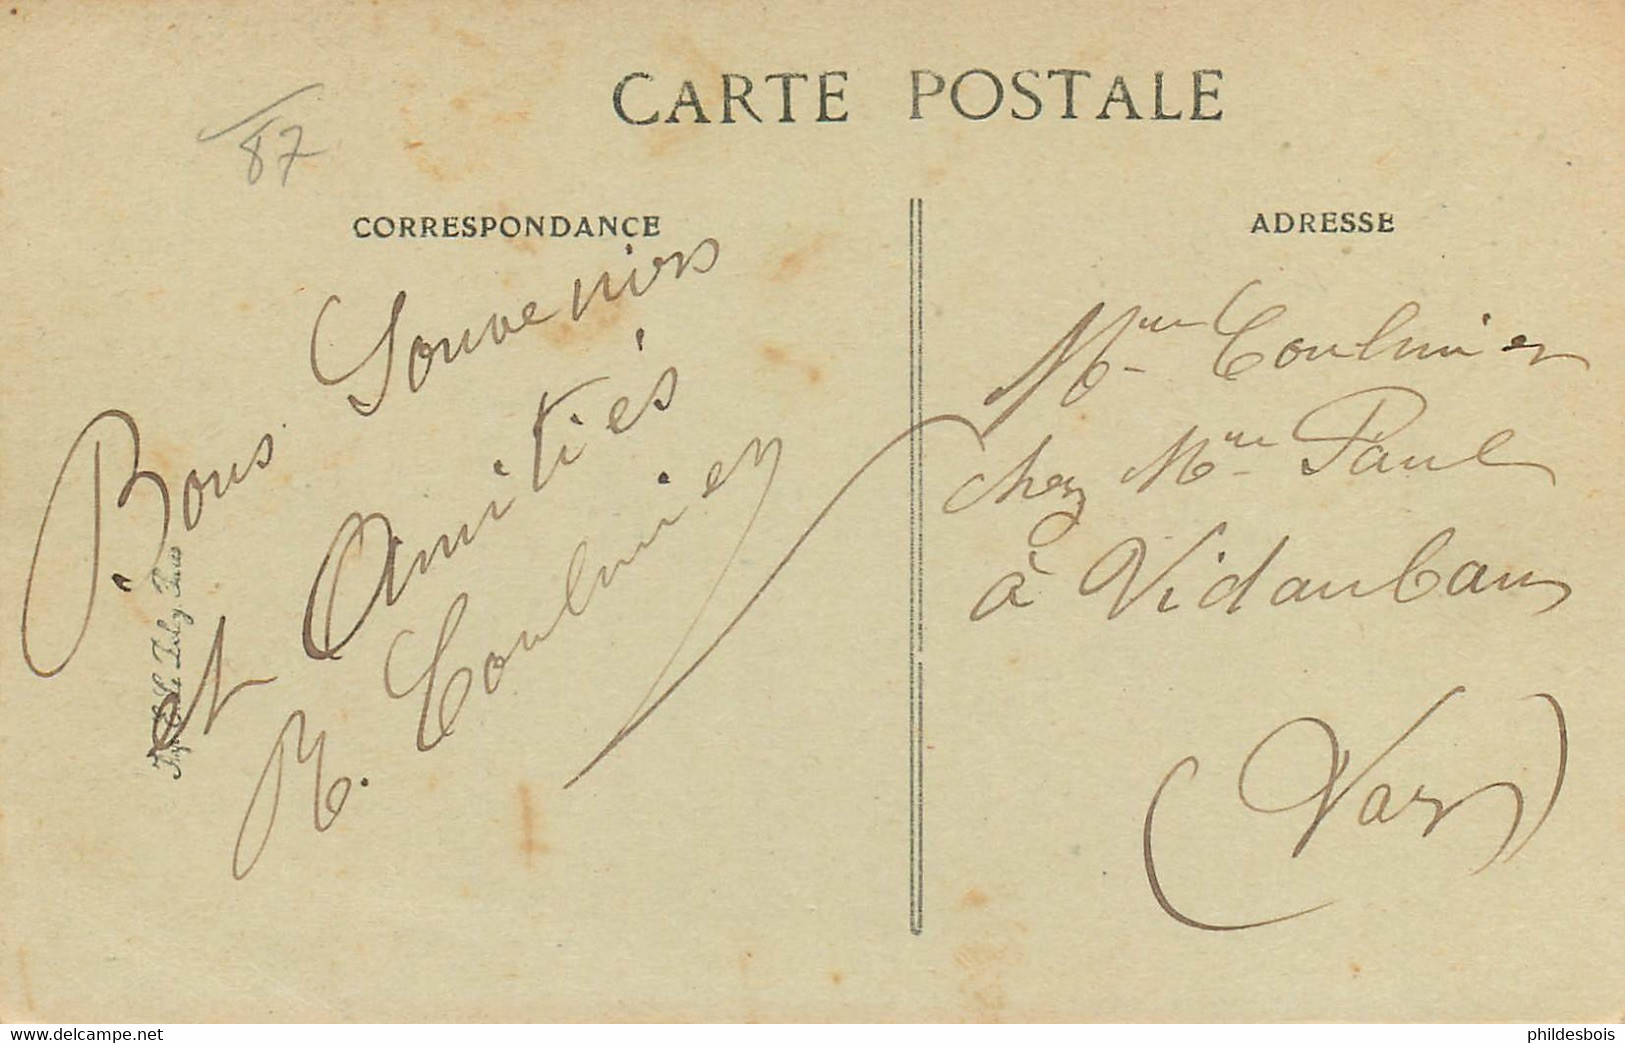 CARTE POSTALE
87
CORRESPONDANCE
ADRESSE
Bons Souvenirs
et Amitiés
R. Coulmier
Mme Coulmier
chez Mme Paul
à Vidauban
(Var)
www.delcampe.net
phildesbois